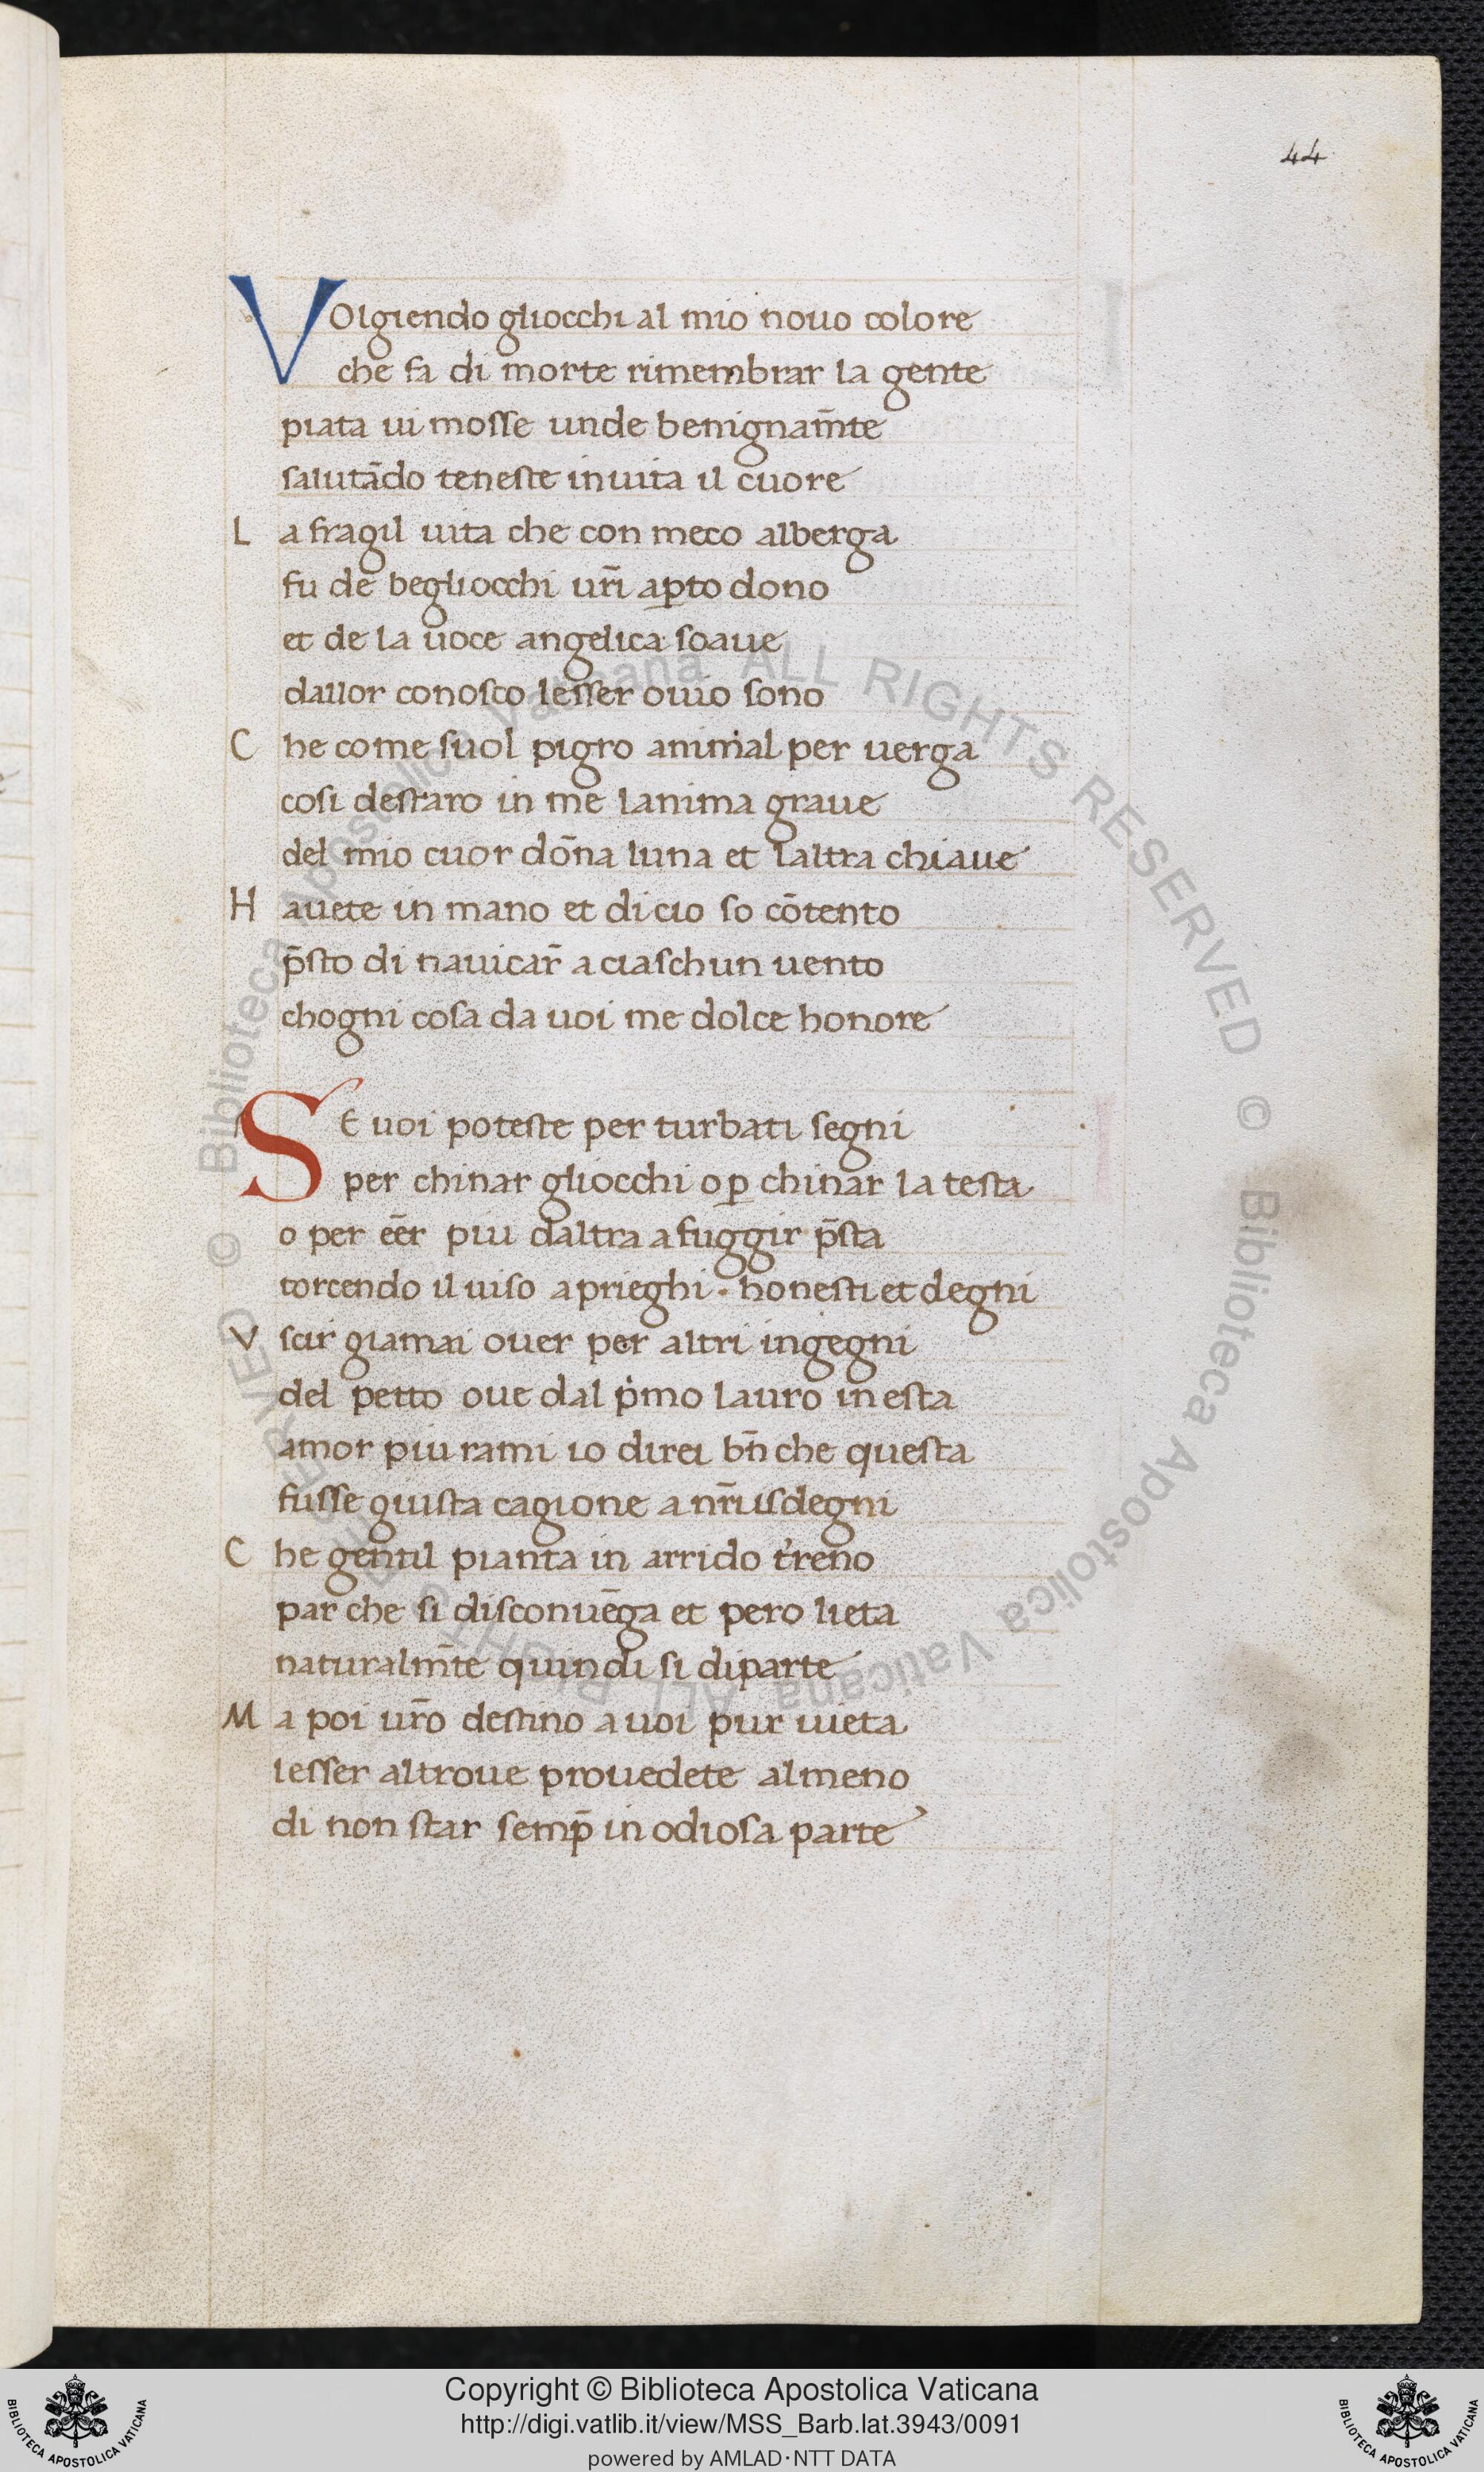 44
VOlgiendo gliocchi al mio nouo colore
che fa di morte rimembrar la gente
piata ui mosse unde benignam̄te
salutādo teneste inuita il cuore
L a fragil uita che con meco alberga
fu de begliocchi ur̄i aꝑto dono
et de la uoce angelica soaue
dallor conosco lesser ouio sono
C he come suol pigro animal per uerga
cosi destaro in me lanima graue
del mio cuor dōna luna et laltra chiaue
H auete in mano et di cio so cōtento
p̄sto di nauicar̄ a ciaschun uento
chogni cosa da uoi me dolce honore
SE uoi poteste per turbati segni
per chinar gliocchi o ꝑ chinar la testa
o per eēr piu daltra a fuggir p̄sta
torcendo il uiso a prieghi · honesti et degni
V scir giamai ouer per altri ingegni
del petto oue dal pͥmo lauro inesta
amor piu rami io direi bn̄ che questa
fusse giusta cagione a nr̄i sdegni
C he gentil pianta in arrido t̓reno
par che si disconuēga et pero lieta
naturalm̄te quindi si diparte
M a poi ur̄o destino a uoi pur uieta
lesser altroue prouedete almeno
di non star semp̄ in odiosa parte
© Biblioteca Apostolica Vaticana ALL RIGHTS RESERVED © Biblioteca Apostolica Vaticana ALL RIGHTS RESERVED
Copyright © Biblioteca Apostolica Vaticana
http://digi.vatlib.it/view/MSS_Barb.lat.3943/0091
powered by AMLAD·NTT DATA
BIBLIOTECA APOSTOLICA VATICANA
BIBLIOTECA APOSTOLICA VATICANA